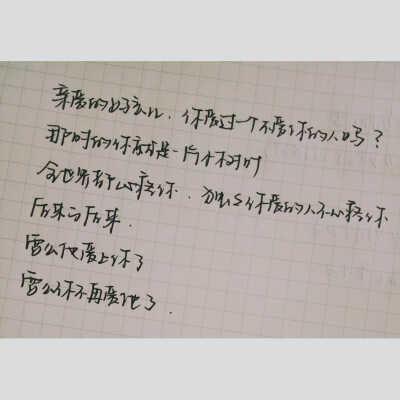 亲爱的 、你爱过一个不爱你的人吗?
那时的你就是一片
全世界都心疼你、 你爱的人不心疼你
后来的后来.
要么他爱上你了
要么你不再爱他了.